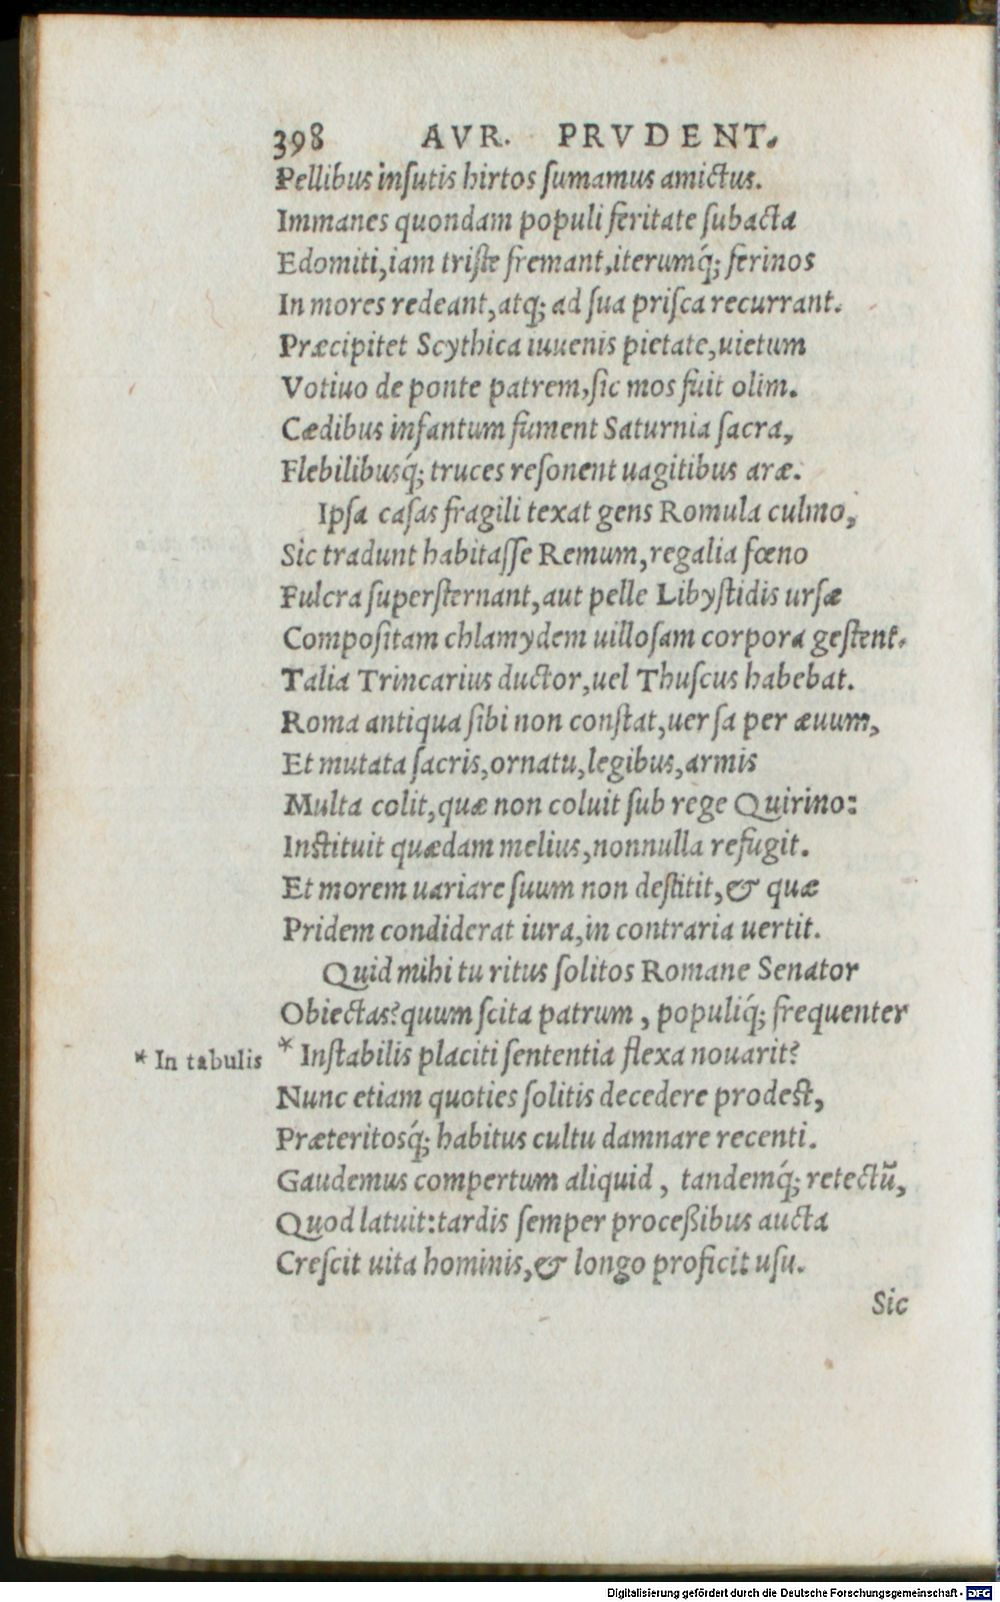 398 AVR. PRVDENT.
Pellibus insutis hirtos sumamus amictus.
Immanes quondam populi feritate subacta
Edomiti, iam triste fremant, iterumq́; ferinos
In mores redeant, atq; ad sua prisca recurrant.
Præcipitet Scythica iuuenis pietate, uietum
Votiuo de ponte patrem, sic mos fuit olim.
Cædibus infantum fument Saturnia sacra,
Flebilibusq́; truces resonent uagitibus aræ.
Ipsa casas fragili texat gens Romula culmo,
Sic tradunt habitasse Remum, regalia fœno
Fulcra supersternant, aut pelle Libystidis ursæ
Compositam chlamydem uillosam corpora gestent.
Talia Trincarius ductor, uel Thuscus habebat.
Roma antiqua sibi non constat, uersa per æuum,
Et mutata sacris, ornatu, legibus, armis
Multa colit, quæ non coluit sub rege Quirino:
Instituit quædam melius, nonnulla refugit.
Et morem uariare suum non destitit, & quæ
Pridem condiderat iura, in contraria uertit.
Quid mihi tu ritus solitos Romane Senator
Obiectas? quum scita patrum, populiq́; frequenter
* In tabulis * Instabilis placiti sententia flexa nouarit?
Nunc etiam quoties solitis decedere prodest,
Præteritosq́; habitus cultu damnare recenti.
Gaudemus compertum aliquid, tandemq́; retectū,
Quod latuit: tardis semper proceßibus aucta
Crescit uita hominis, & longo proficit usu.
Sic
Digitalisierung gefördert durch die Deutsche Forschungsgemeinschaft - DFG